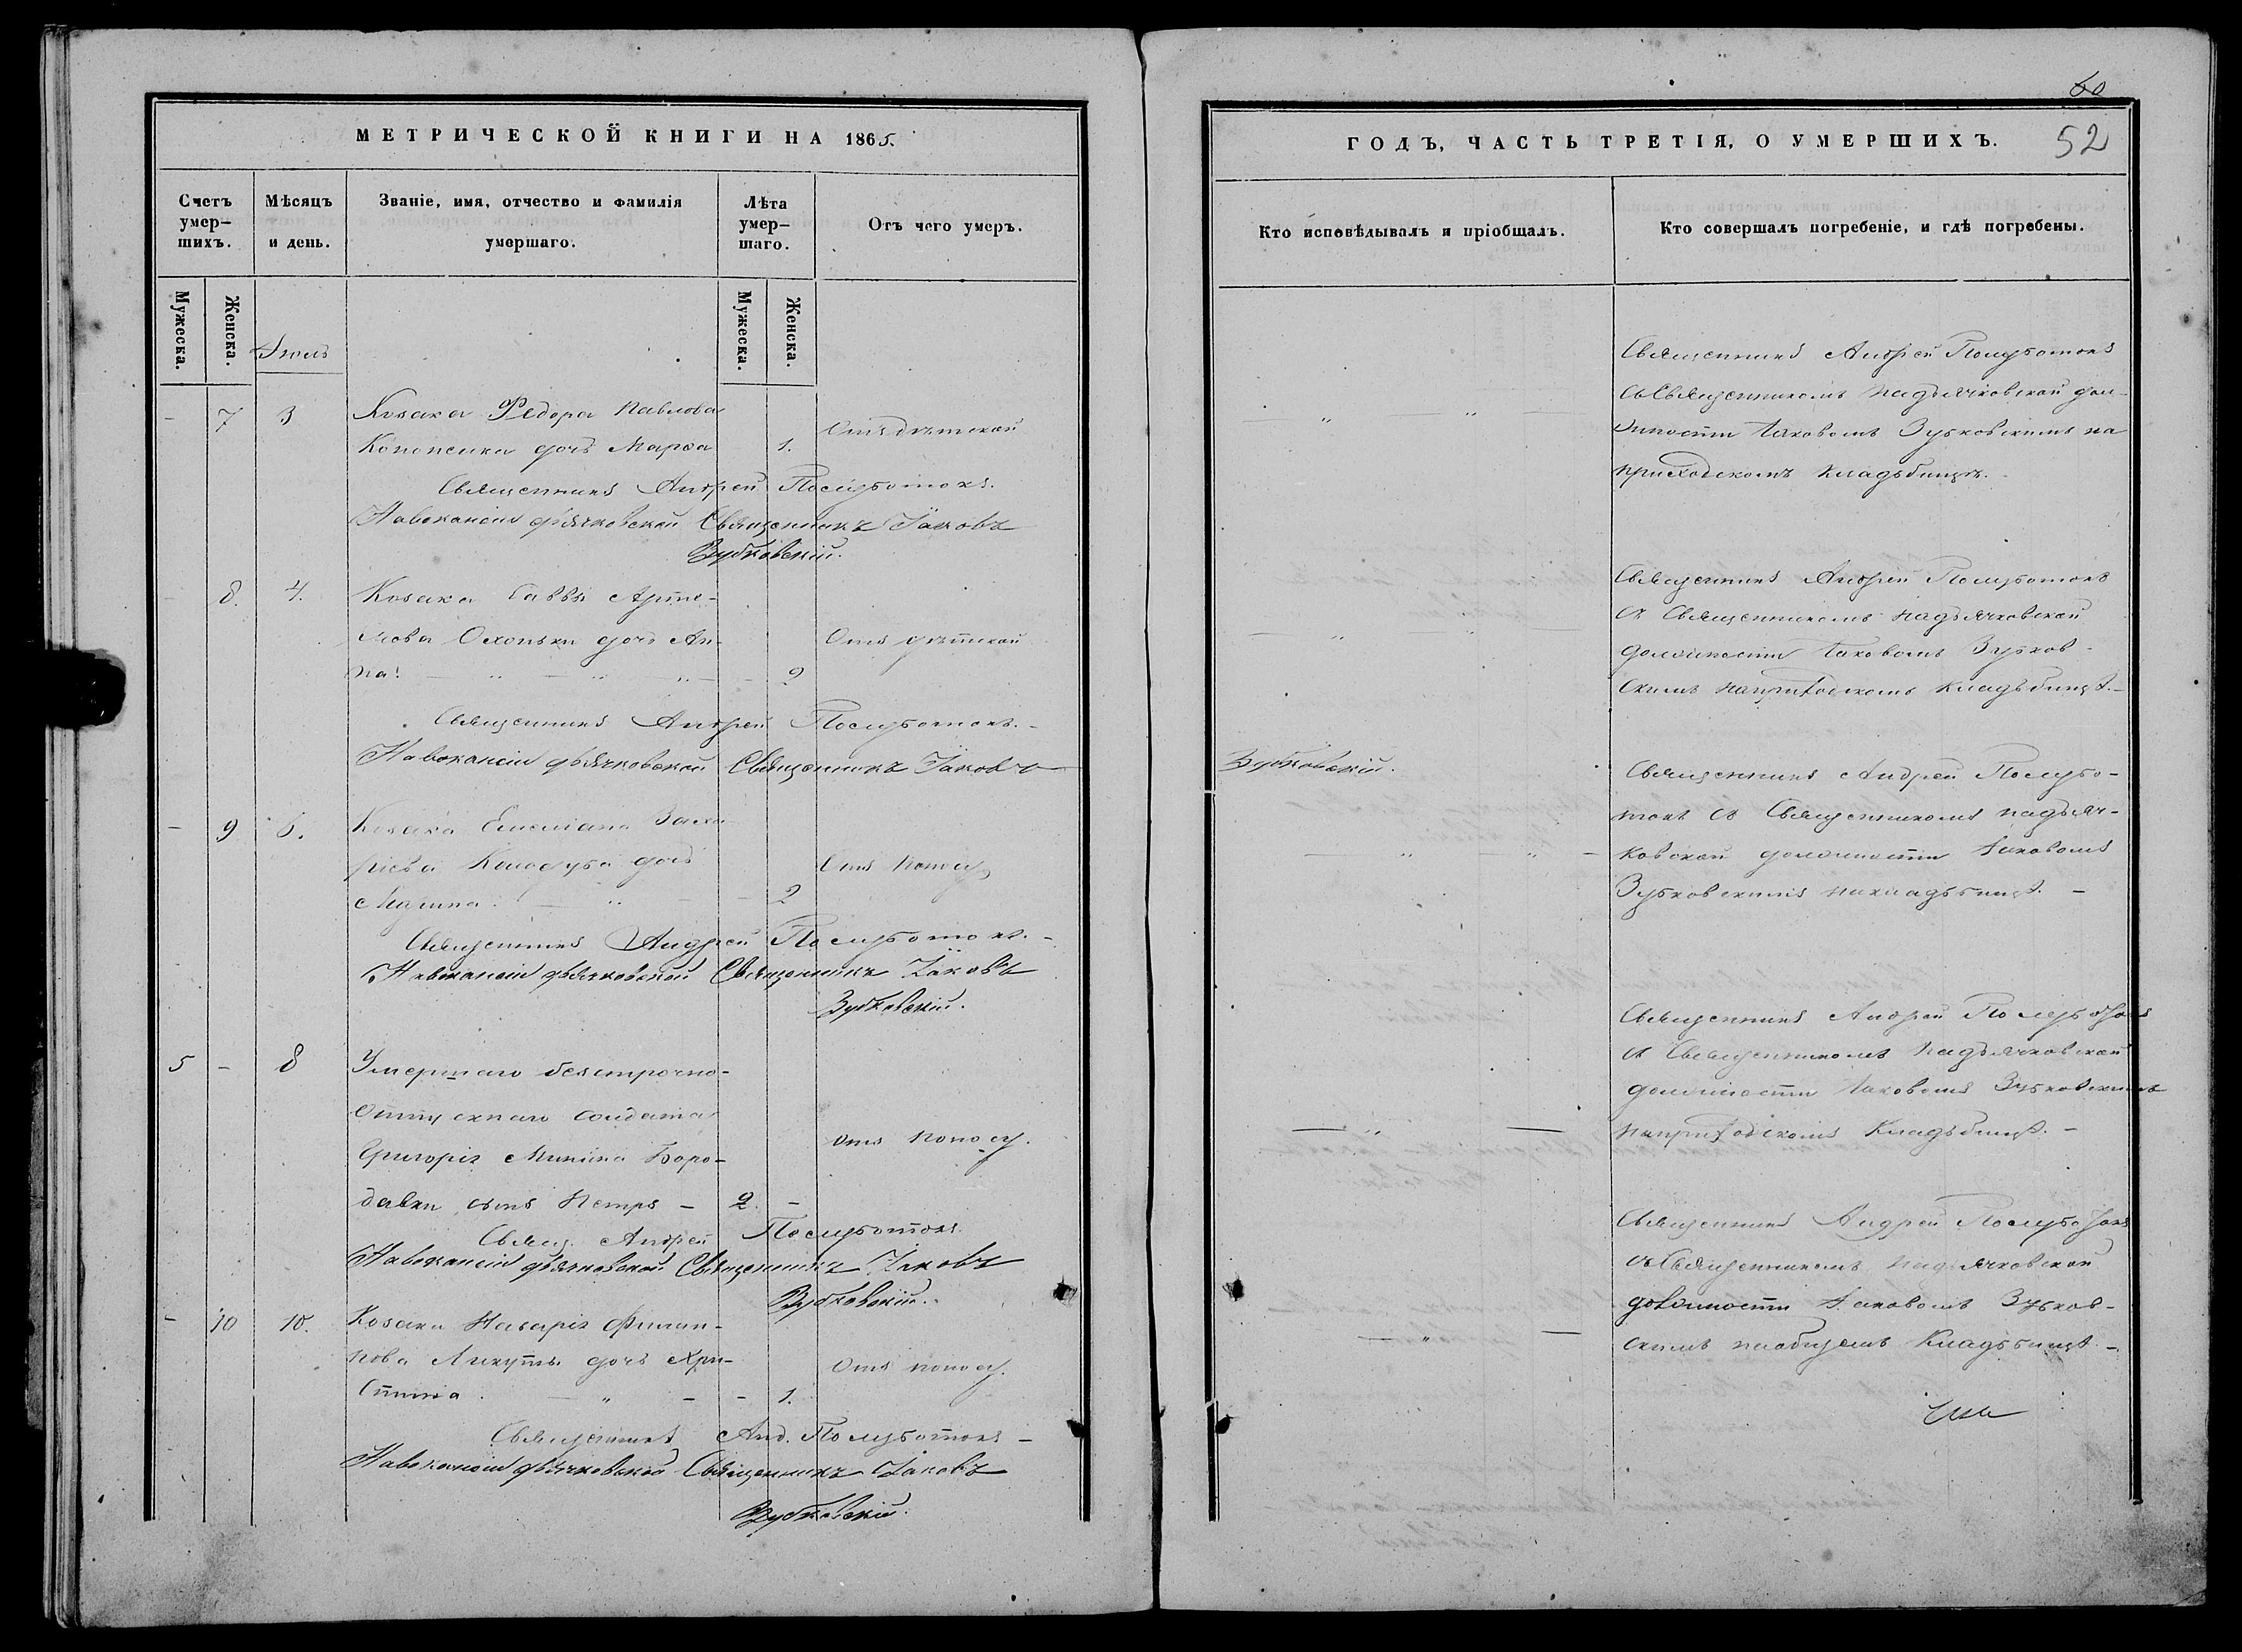 МЕТРИЧЕСКОЙ КНИГИ НА 1865.
Счетъ умер-шихъ.
Мѣсяцъ и день.
Званіе, имя, отчество и фамилія умершаго.
Лѣта умер-шаго.
Отъ чего умеръ.
Мужеска.
Женска.
Мужеска.
Женска.
- 7 3 Козака Федора Павлова
Кононенка дочь Марѳа 1. Отъ дѣтской
Священникъ Андрей Полуботокъ.
На вакансіи дьячковской Священникъ Іаковъ
Зубковскій.
8. 4. Козака Саввы Арте-
мова Охонька дочь Ан- Отъ дѣтской
на. 2
Священникъ Андрей Полуботокъ.-
На вакансіи дьячковской Священникъ Іаковъ
Зубковскій.
- 9 6. Козака Емеліана Заха-
ріева Колодуба дочь Отъ поносу
Марина. 2
Священникъ Андрей Полуботокъ.-
На вакансіи дьячковской Священникъ Іаковъ
Зубковскій.
5 - 8 Умершаго безсрочно-
отпускнаго солдата
Григорія Минина Боро- отъ поносу.
давки сынъ Петръ - 2. -
Свящ. Андрей Полуботокъ
На вакансіи дьячковской Священникъ Іаковъ
Зубковскій.
- 10 10. Козака Назарія Филип-
пова Ликуты дочь Хри- Отъ поносу.
стина. - - 1.
Священникъ Анд. Полуботокъ -
На вакансіи дьячковской Священникъ Іаковъ
Зубковскій.
60
ГОДЪ, ЧАСТЬ ТРЕТІЯ, О УМЕРШИХЪ.
52
Кто исповѣдывалъ и пріобщалъ.
Кто совершалъ погребеніе, и гдѣ погребены.
Священникъ Андрей Полуботокъ
съ Священникомъ надьячковской дол-
жности Іаковомъ Зубковскимъ на
приходскомъ кладбищѣ.
Священникъ Андрей Полуботокъ
съ Священникомъ надьячковской
должности Іаковомъ Зубков-
скимъ на приходскомъ кладбищѣ.-
Священникъ Андрей Полубо-
токъ съ Священникомъ надьяч-
ковской должности Іаковомъ
Зубковскимъ на кладбищѣ. -
Священникъ Андрей Полуботокъ
съ Священникомъ надьячковской
должности Іаковомъ Зубковскимъ
на приходскомъ Кладбищѣ. -
Священникъ Андрей Полуботокъ
съ Священникомъ надьячковской
должности Іаковомъ Зубков-
скимъ на общемъ Кладбищѣ. -